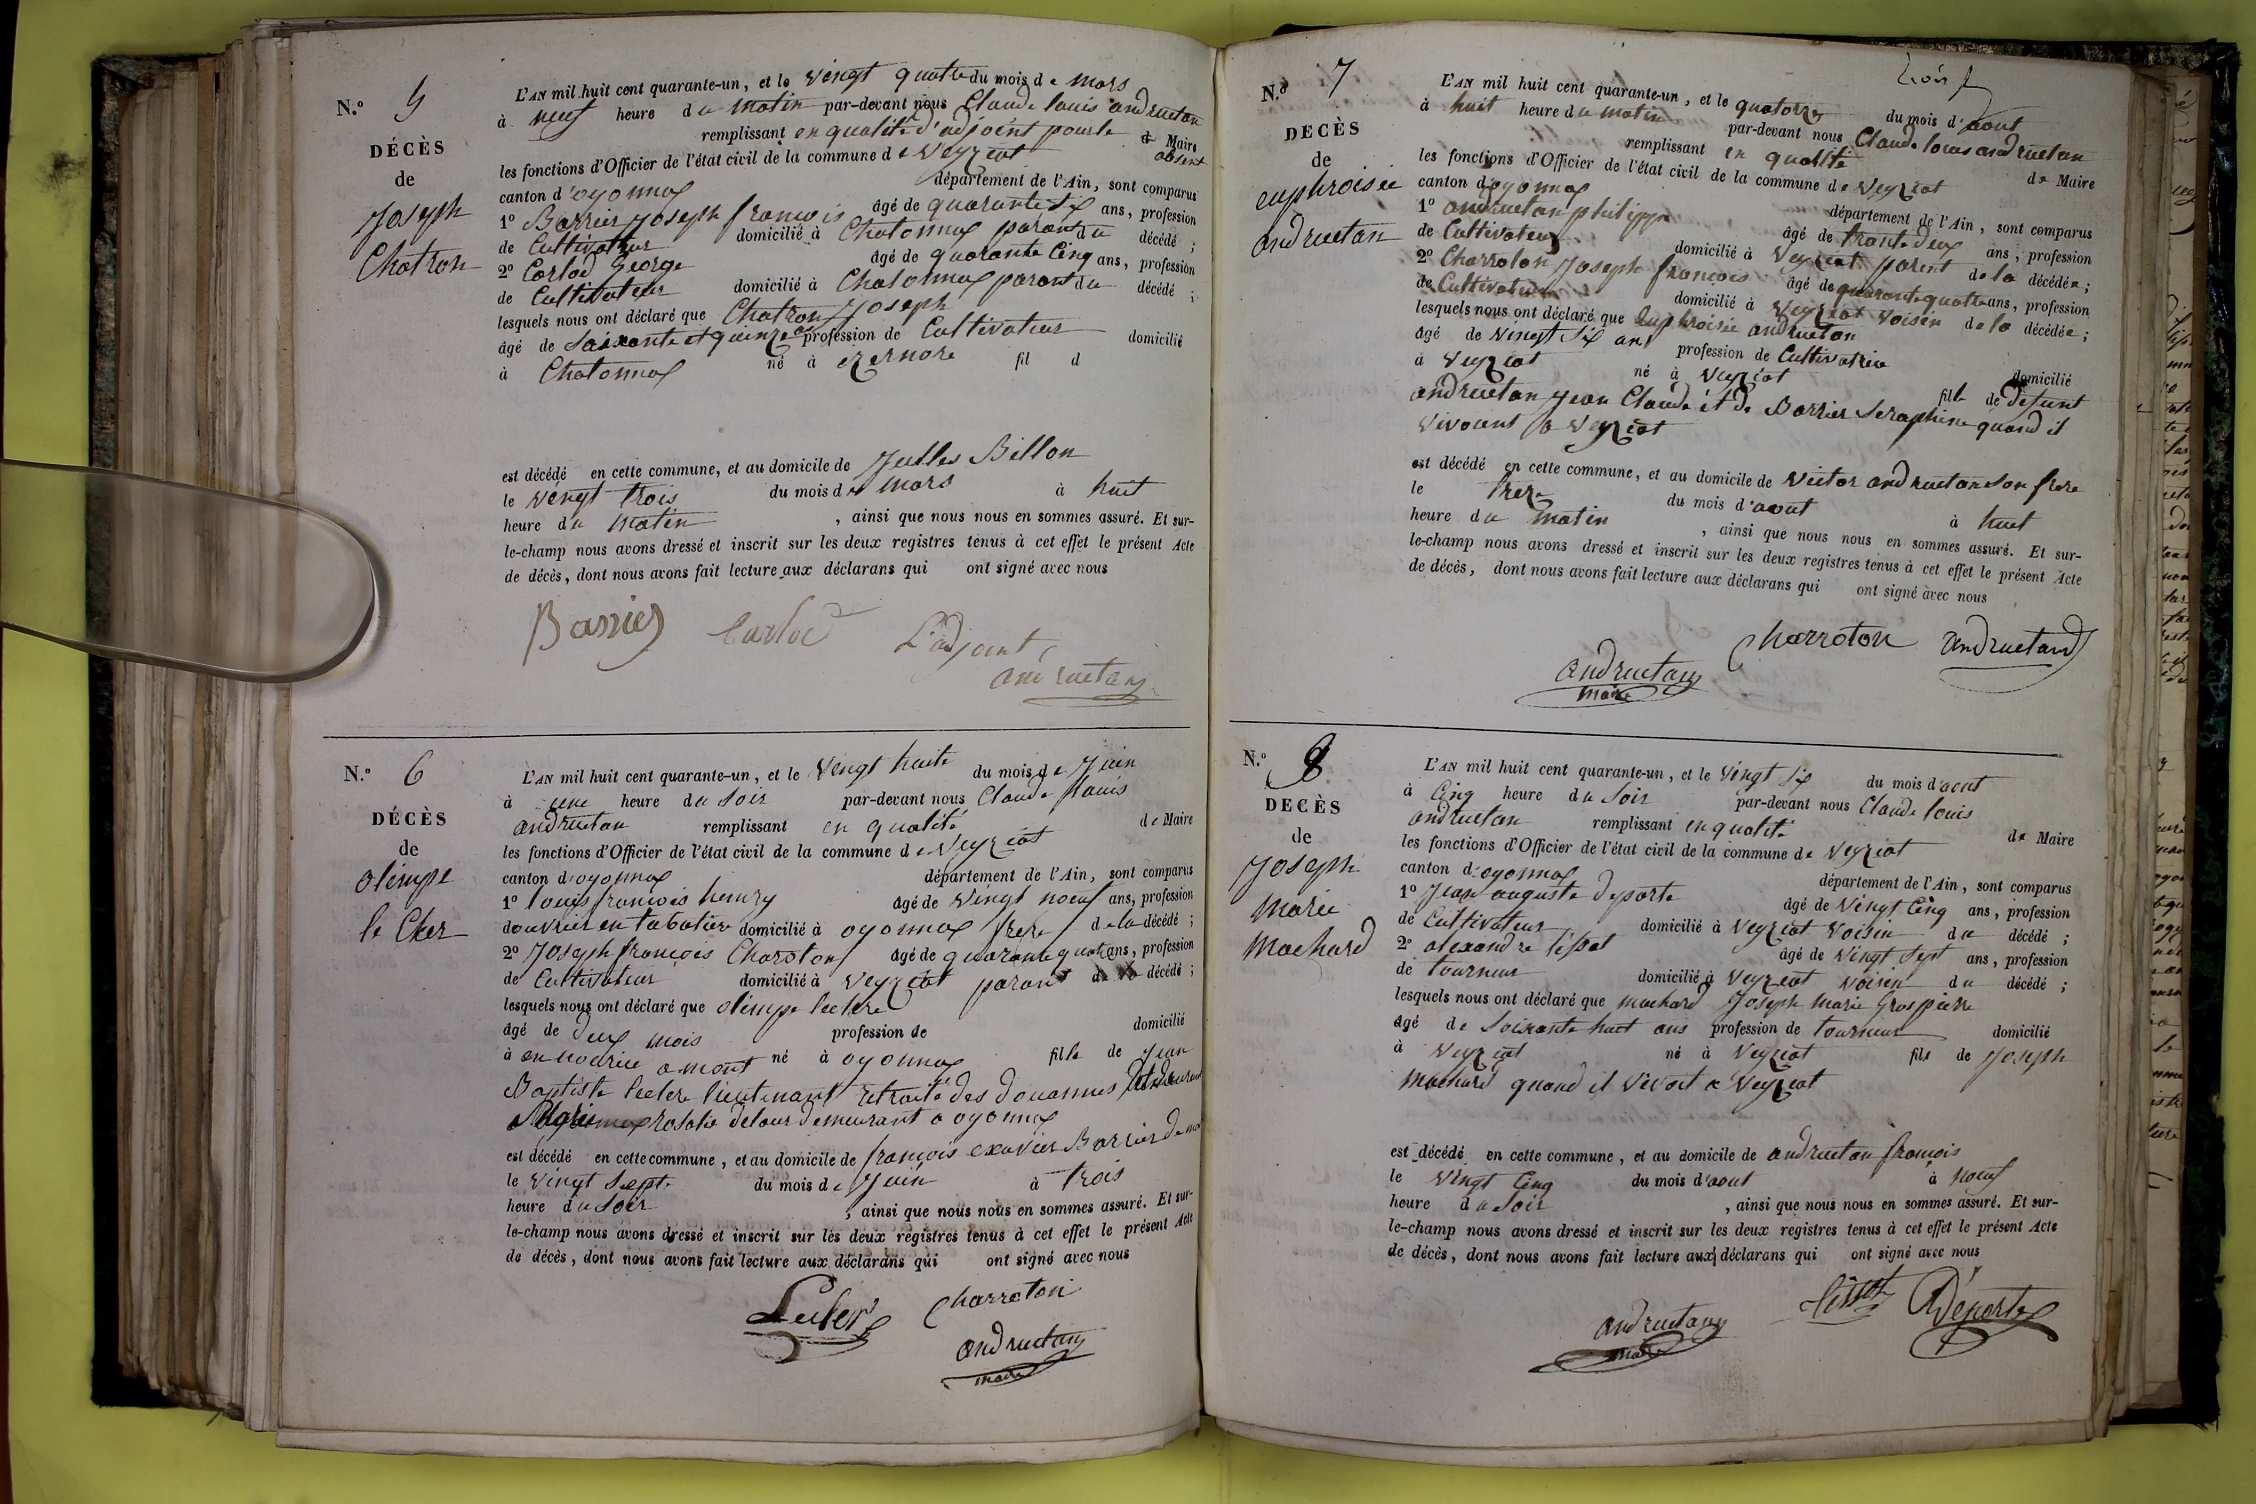 N.º 5
DÉCÈS
de
Joseph
Chatron
L'AN mil huit cent quarante-un, et le vingt quatre du mois de mars
à neuf heure du matin par-devant nous Claude louis andruetan
remplissant en qualité d'adjoint pour le Maire absent
les fonctions d'Officier de l'état civil de la commune de Veyziat
canton d'oyonnax département de l'Ain, sont comparus
1º Barrier Joseph françois âgé de quarante six ans, profession
de Cultivateur domicilié à Chatonnax parant du décédé ;
2º Carlod George âgé de quarante Cinq ans, profession
de Cultivateur domicilié à Chatonnax parant du décédé ;
lesquels nous ont déclaré que Chatron Joseph
âgé de Soixante et quinze profession de Cultivateur domicilié
à Chatonnax né à ezernore fil d
est décédé en cette commune, et au domicile de Julles Billon
le vingt trois du mois de mars à huit
heure du matin , ainsi que nous nous en sommes assuré. Et sur-
le-champ nous avons dressé et inscrit sur les deux registres tenus à cet effet le présent Acte
de décès, dont nous avons fait lecture aux déclarans qui ont signé avec nous
Barrier Carlod L'adjoint,
andruetan
N.º 6
DÉCÈS
de
olimpe
le Cler
L'AN mil huit cent quarante-un, et le vingt huite du mois de Juin
à une heure du Soir par-devant nous Claude louis
andruetan remplissant en qualité de Maire
les fonctions d'Officier de l'état civil de la commune de Veyziat
canton d'oyonnax département de l'Ain, sont comparus
1º louis françois henry âgé de vingt noeuf ans, profession
d'ouvrier en tabatière domicilié à oyonnax frere de la décédé ;
2º Joseph françois Charoton âgé de quarante quatre ans, profession
de Cultivateur domicilié à Veyziat parant décédé ;
lesquels nous ont déclaré que olimpe leclere
âgé de deux mois profession de domicilié
à en nourice a mont né à oyonnax fille de Jean
Baptiste leclere lieutenant retraité des douannes
rosalie delour demeurant a oyonnax
est décédé en cette commune, et au domicile de françois exavier Barrier
le vingt Sept du mois de Juin à trois
heure du Soir , ainsi que nous nous en sommes assuré. Et sur-
le-champ nous avons dressé et inscrit sur les deux registres tenus à cet effet le présent Acte
de décès, dont nous avons fait lecture aux déclarans qui ont signé avec nous
Charroton
andruetan
maire
N.º 7
DECÈS
de
euphroisée
andruetan
L'AN mil huit cent quarante-un, et le quatorze du mois d'aout
à huit heure du matin par-devant nous Claude louis andruetan
remplissant en qualité de Maire
les fonctions d'Officier de l'état civil de la commune de Veyziat
canton d'oyonnax département de l'Ain, sont comparus
1º andruetan philippe âgé de trante deux ans, profession
de Cultivateur domicilié à Veyziat parent de la décédée ;
2º Charroton Joseph françois âgé de quarante quatre ans, profession
de Cultivateur domicilié à Veyziat voisin de la décédée ;
lesquels nous ont déclaré que euphroisée andruetan
âgé de vingt Six ans profession de Cultivatrice domicilié
à Veyziat né à Veyziat fille de defunt
andruetan Jean Claude et de Barrier Seraphine quand il
vivoient a Veyziat
est décédé en cette commune, et au domicile de victor andruetan Son frere
le treze du mois d'aout à huit
heure du matin , ainsi que nous nous en sommes assuré. Et sur-
le-champ nous avons dressé et inscrit sur les deux registres tenus à cet effet le présent Acte
de décès, dont nous avons fait lecture aux déclarans qui ont signé avec nous
andruetan Charroton andruetan
maire
N.º 8
DECÈS
de
Joseph
Marie
Machard
L'AN mil huit cent quarante-un, et le vingt Six du mois d'aout
à Cinq heure du Soir par-devant nous Claude louis
andruetan remplissant en qualité de Maire
les fonctions d'Officier de l'état civil de la commune de Veyziat
canton d'oyonnax département de l'Ain, sont comparus
1º Jean auguste deporte âgé de vingt Cinq ans, profession
de Cultivateur domicilié à Veyziat voisin du décédé ;
2º alexandre lissot âgé de vingt Sept ans, profession
de tourneur domicilié à Veyziat voisin du décédé ;
lesquels nous ont déclaré que machard Joseph Marie Grospierre
âgé de Soixante huit ans profession de tourneur domicilié
à Veyziat né à Veyziat fils de Joseph
machard quand il vivoit a Veyziat
est décédé en cette commune, et au domicile de andruetan françois
le vingt Cinq du mois d'aout à noeuf
heure du Soir , ainsi que nous nous en sommes assuré. Et sur-
le-champ nous avons dressé et inscrit sur les deux registres tenus à cet effet le présent Acte
de décès, dont nous avons fait lecture aux déclarans qui ont signé avec nous
andruetan lissot Déporte
maire